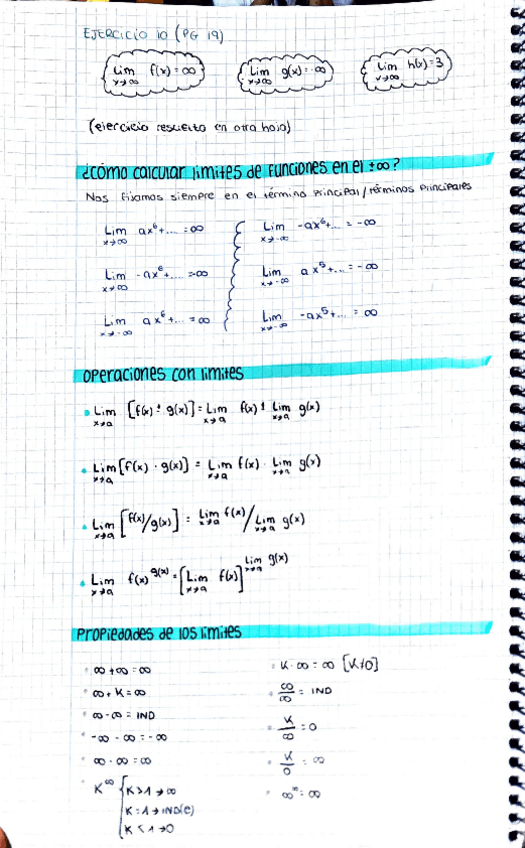 EJERCICIO 10 (PG 19)
Lim x→∞ f(x) = ∞
Lim x→∞ g(x) = -∞
Lim x→∞ h(x) = 3
(ejercicio resuelto en otra hoja)
¿cómo calcular límites de funciones en el ±∞?
Nos fijamos siempre en el término principal / términos principales
Lim x→∞ ax⁶+... = ∞
Lim x→-∞ -ax⁶+... = -∞
Lim x→∞ -ax⁶+... = -∞
Lim x→-∞ ax⁵+... = -∞
Lim x→-∞ ax⁶+... = ∞
Lim x→-∞ -ax⁵+... = ∞
operaciones con límites
Lim x→a [f(x) ± g(x)] = Lim x→a f(x) ± Lim x→a g(x)
Lim x→a [f(x) · g(x)] = Lim x→a f(x) · Lim x→a g(x)
Lim x→a [f(x)/g(x)] = Lim x→a f(x) / Lim x→a g(x)
Lim x→a f(x)^g(x) = [Lim x→a f(x)]^Lim x→a g(x)
Propiedades de los límites
∞ + ∞ = ∞
K · ∞ = ∞ [K≠0]
∞ + K = ∞
∞/∞ = IND
∞ - ∞ = IND
K/∞ = 0
-∞ - ∞ = -∞
∞ · ∞ = ∞
K/0 = ∞
K^∞ { K > 1 → ∞
K = 1 → IND(e)
K < 1 → 0
∞^∞ = ∞